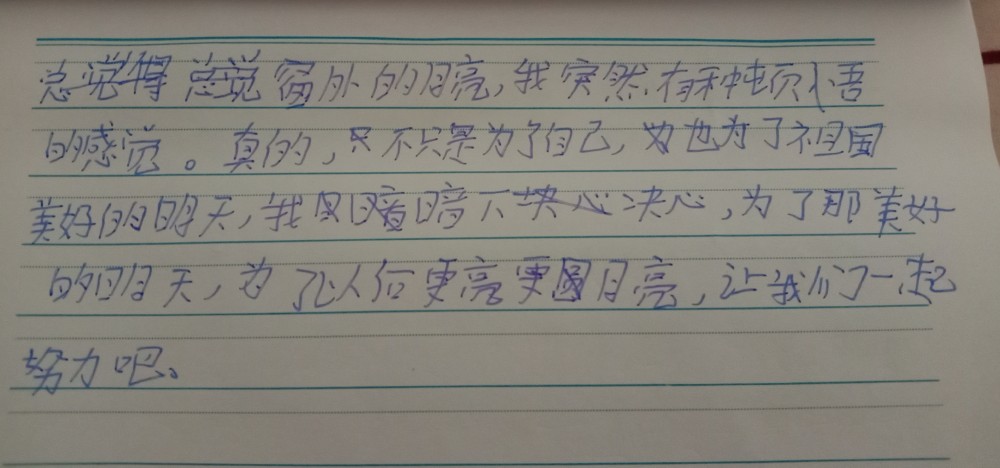 窗外的月亮,我突然有种顿悟
的感觉。真的,不只是为了自己,也为了祖国
美好的明天,我暗暗下决心,为了那美好
的明天,为了以后更亮更圆月亮,让我们一起
努力吧。